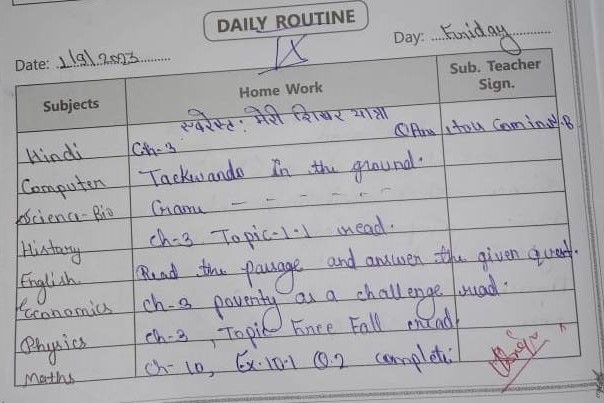 DAILY ROUTINE
IX
Date: 1/9/2023
Day: Friday
Subjects Home Work Sub. Teacher Sign.
एवरेस्ट: मेरी शिखर यात्रा
Hindi Ch-3 Q Ans
Computer Tackwando in the ground.
Science-Bio Game - - - - - -
History Ch-3 Topic-1.1 read.
English Read the passage and answer the given quest.
Economics Ch-3 poverty as a challenge read.
Physics Ch-3, Topic Free Fall read
Maths Ch-10, Ex.10.1 Q.2 complete